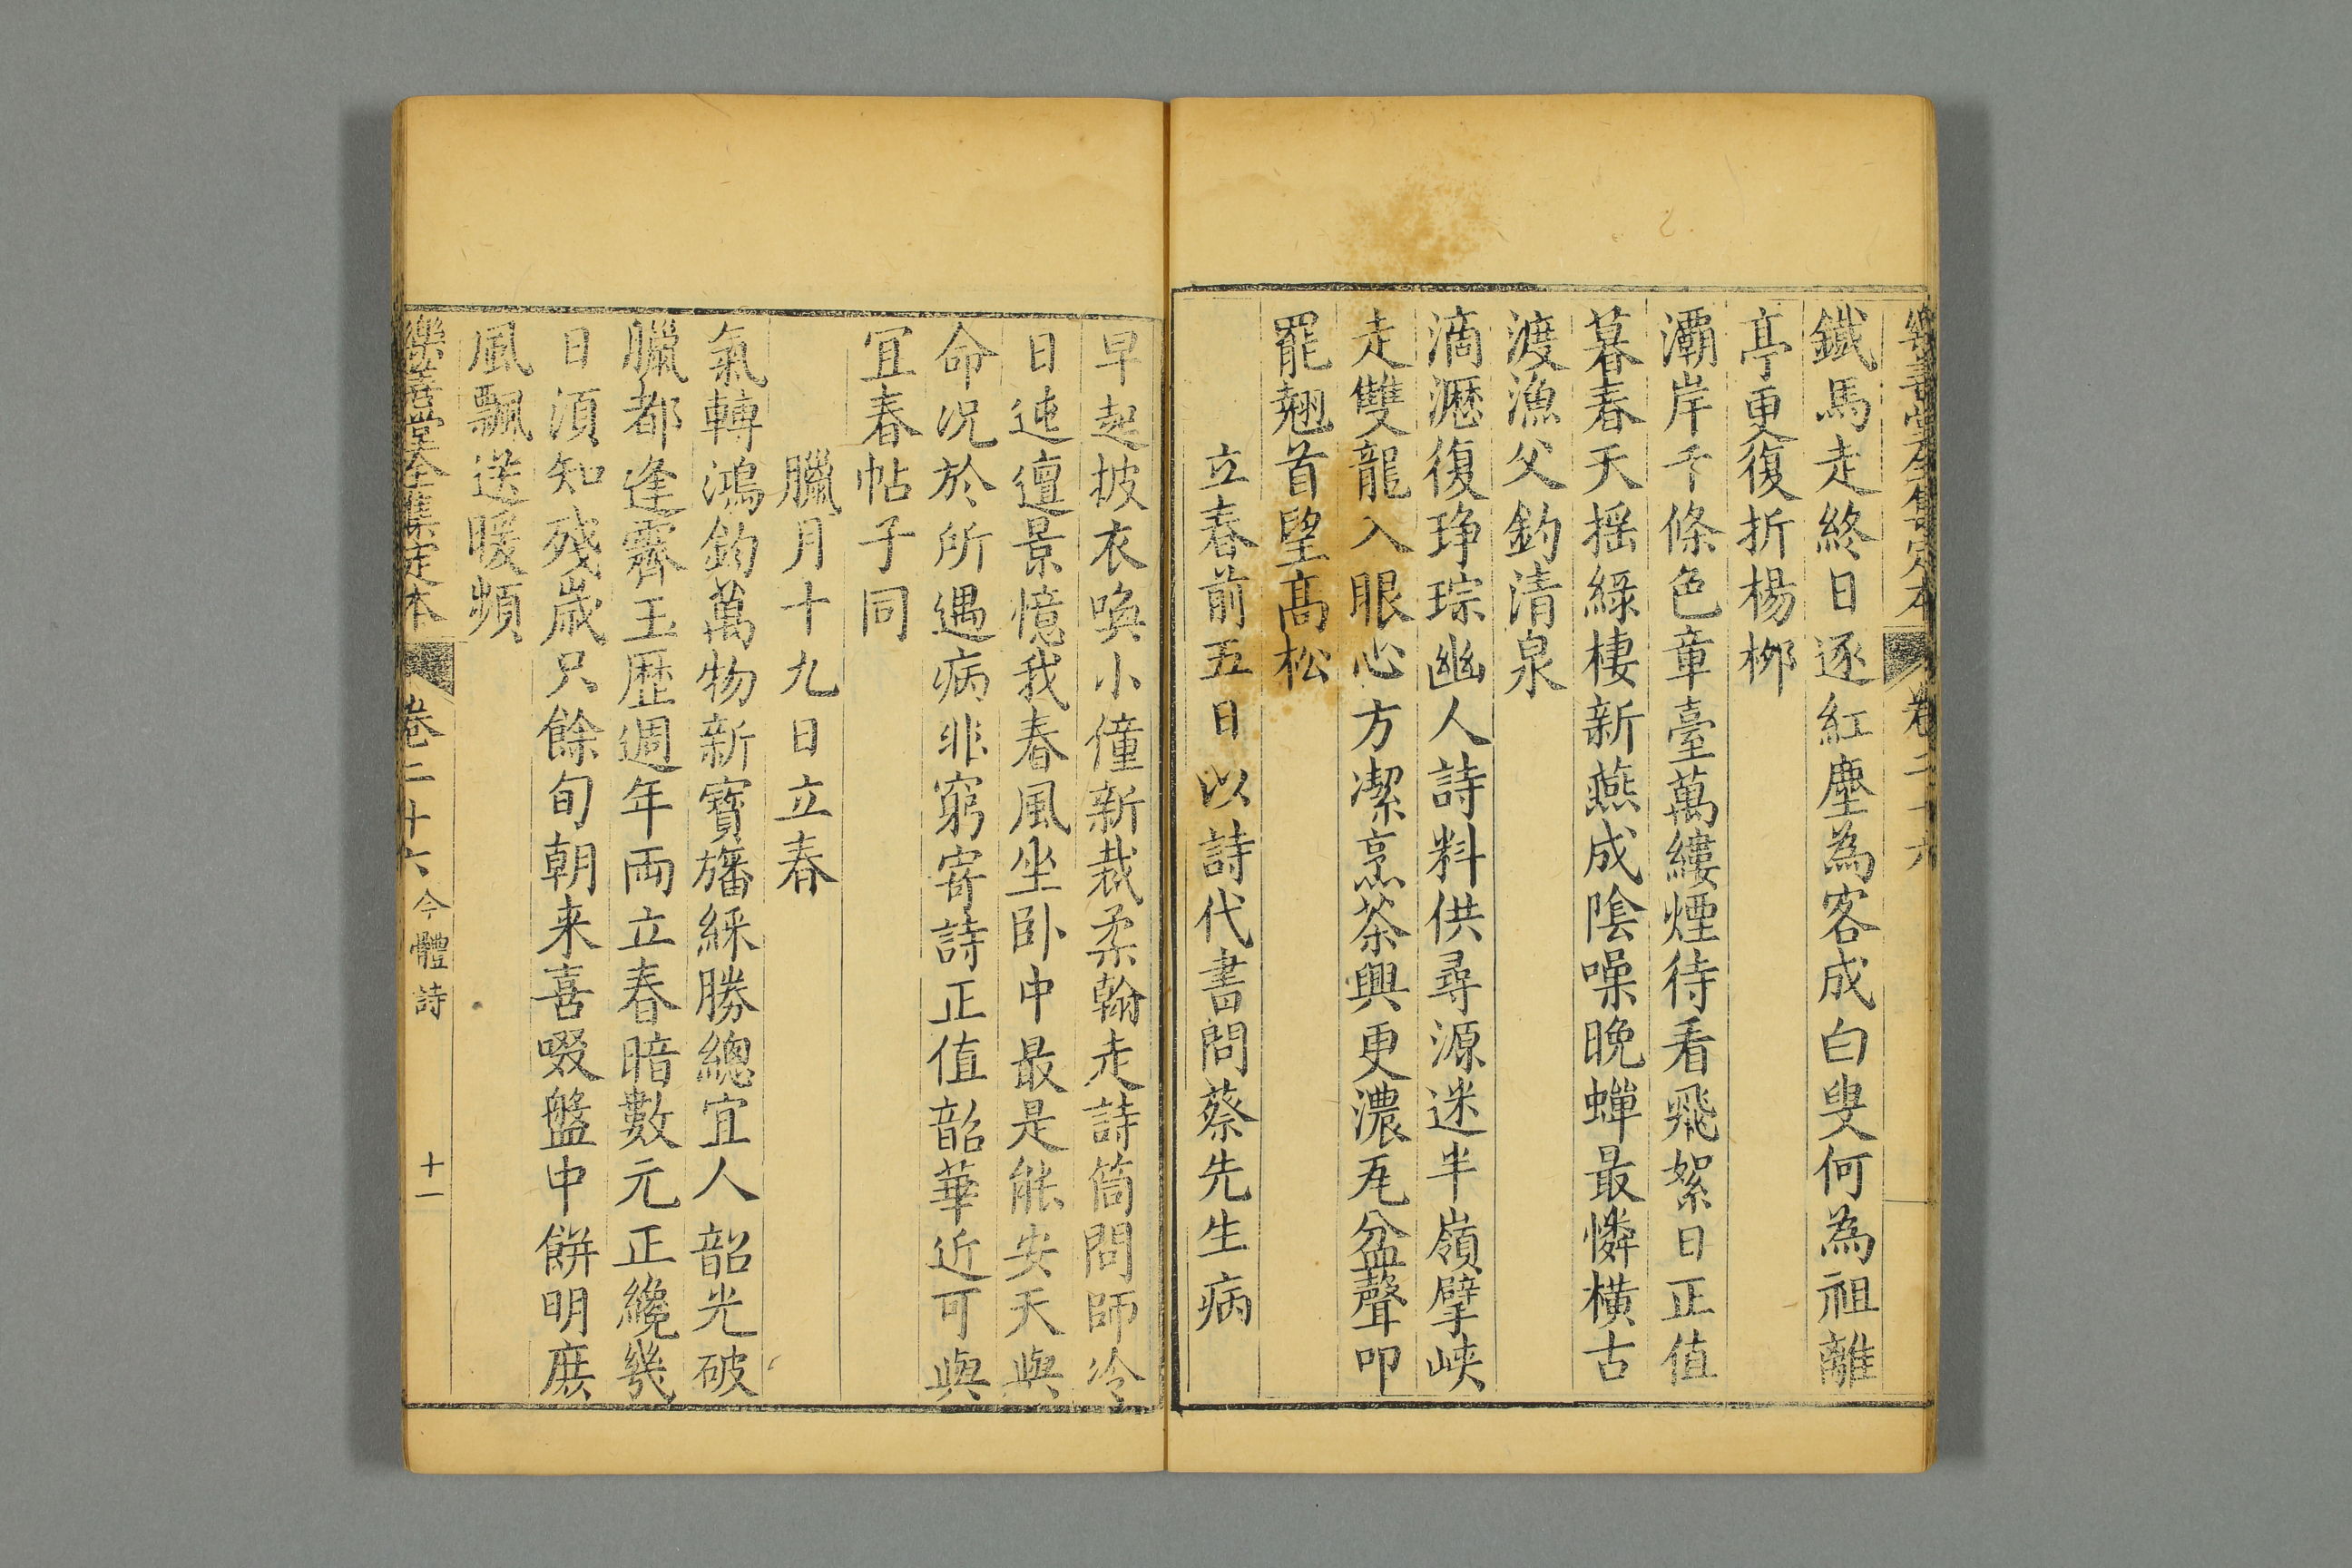 樂善堂全集定本 卷二十六
鐵馬走終日逐紅塵為客成白叟何為祖離
亭更復折楊栁
灞岸千條色章臺萬縷煙待看飛絮日正值
暮春天揺綠棲新燕成陰噪晚蟬最憐横古
渡漁父釣清泉
滴瀝復琤琮幽人詩料供尋源迷半嶺擘峽
走雙龍入眼心方潔烹茶興更濃瓦盆聲叩
罷翹首望髙松
立春前五日以詩代書問蔡先生病
早起披衣喚小僮新裁柔翰走詩筒問師冷
日迍邅景憶我春風坐卧中最是能安天與
命况於所遇病非窮寄詩正值韶華近可與
宜春帖子同
臘月十九日立春
氣轉鴻鈞萬物新寳旛綵勝總宜人韶光破
臘都逢霽玉歴週年両立春暗數元正纔幾
日湏知殘嵗只餘旬朝来喜啜盤中餅明庶
風飄送暖頻
樂善堂全集定本 卷二十六 今體詩 十一